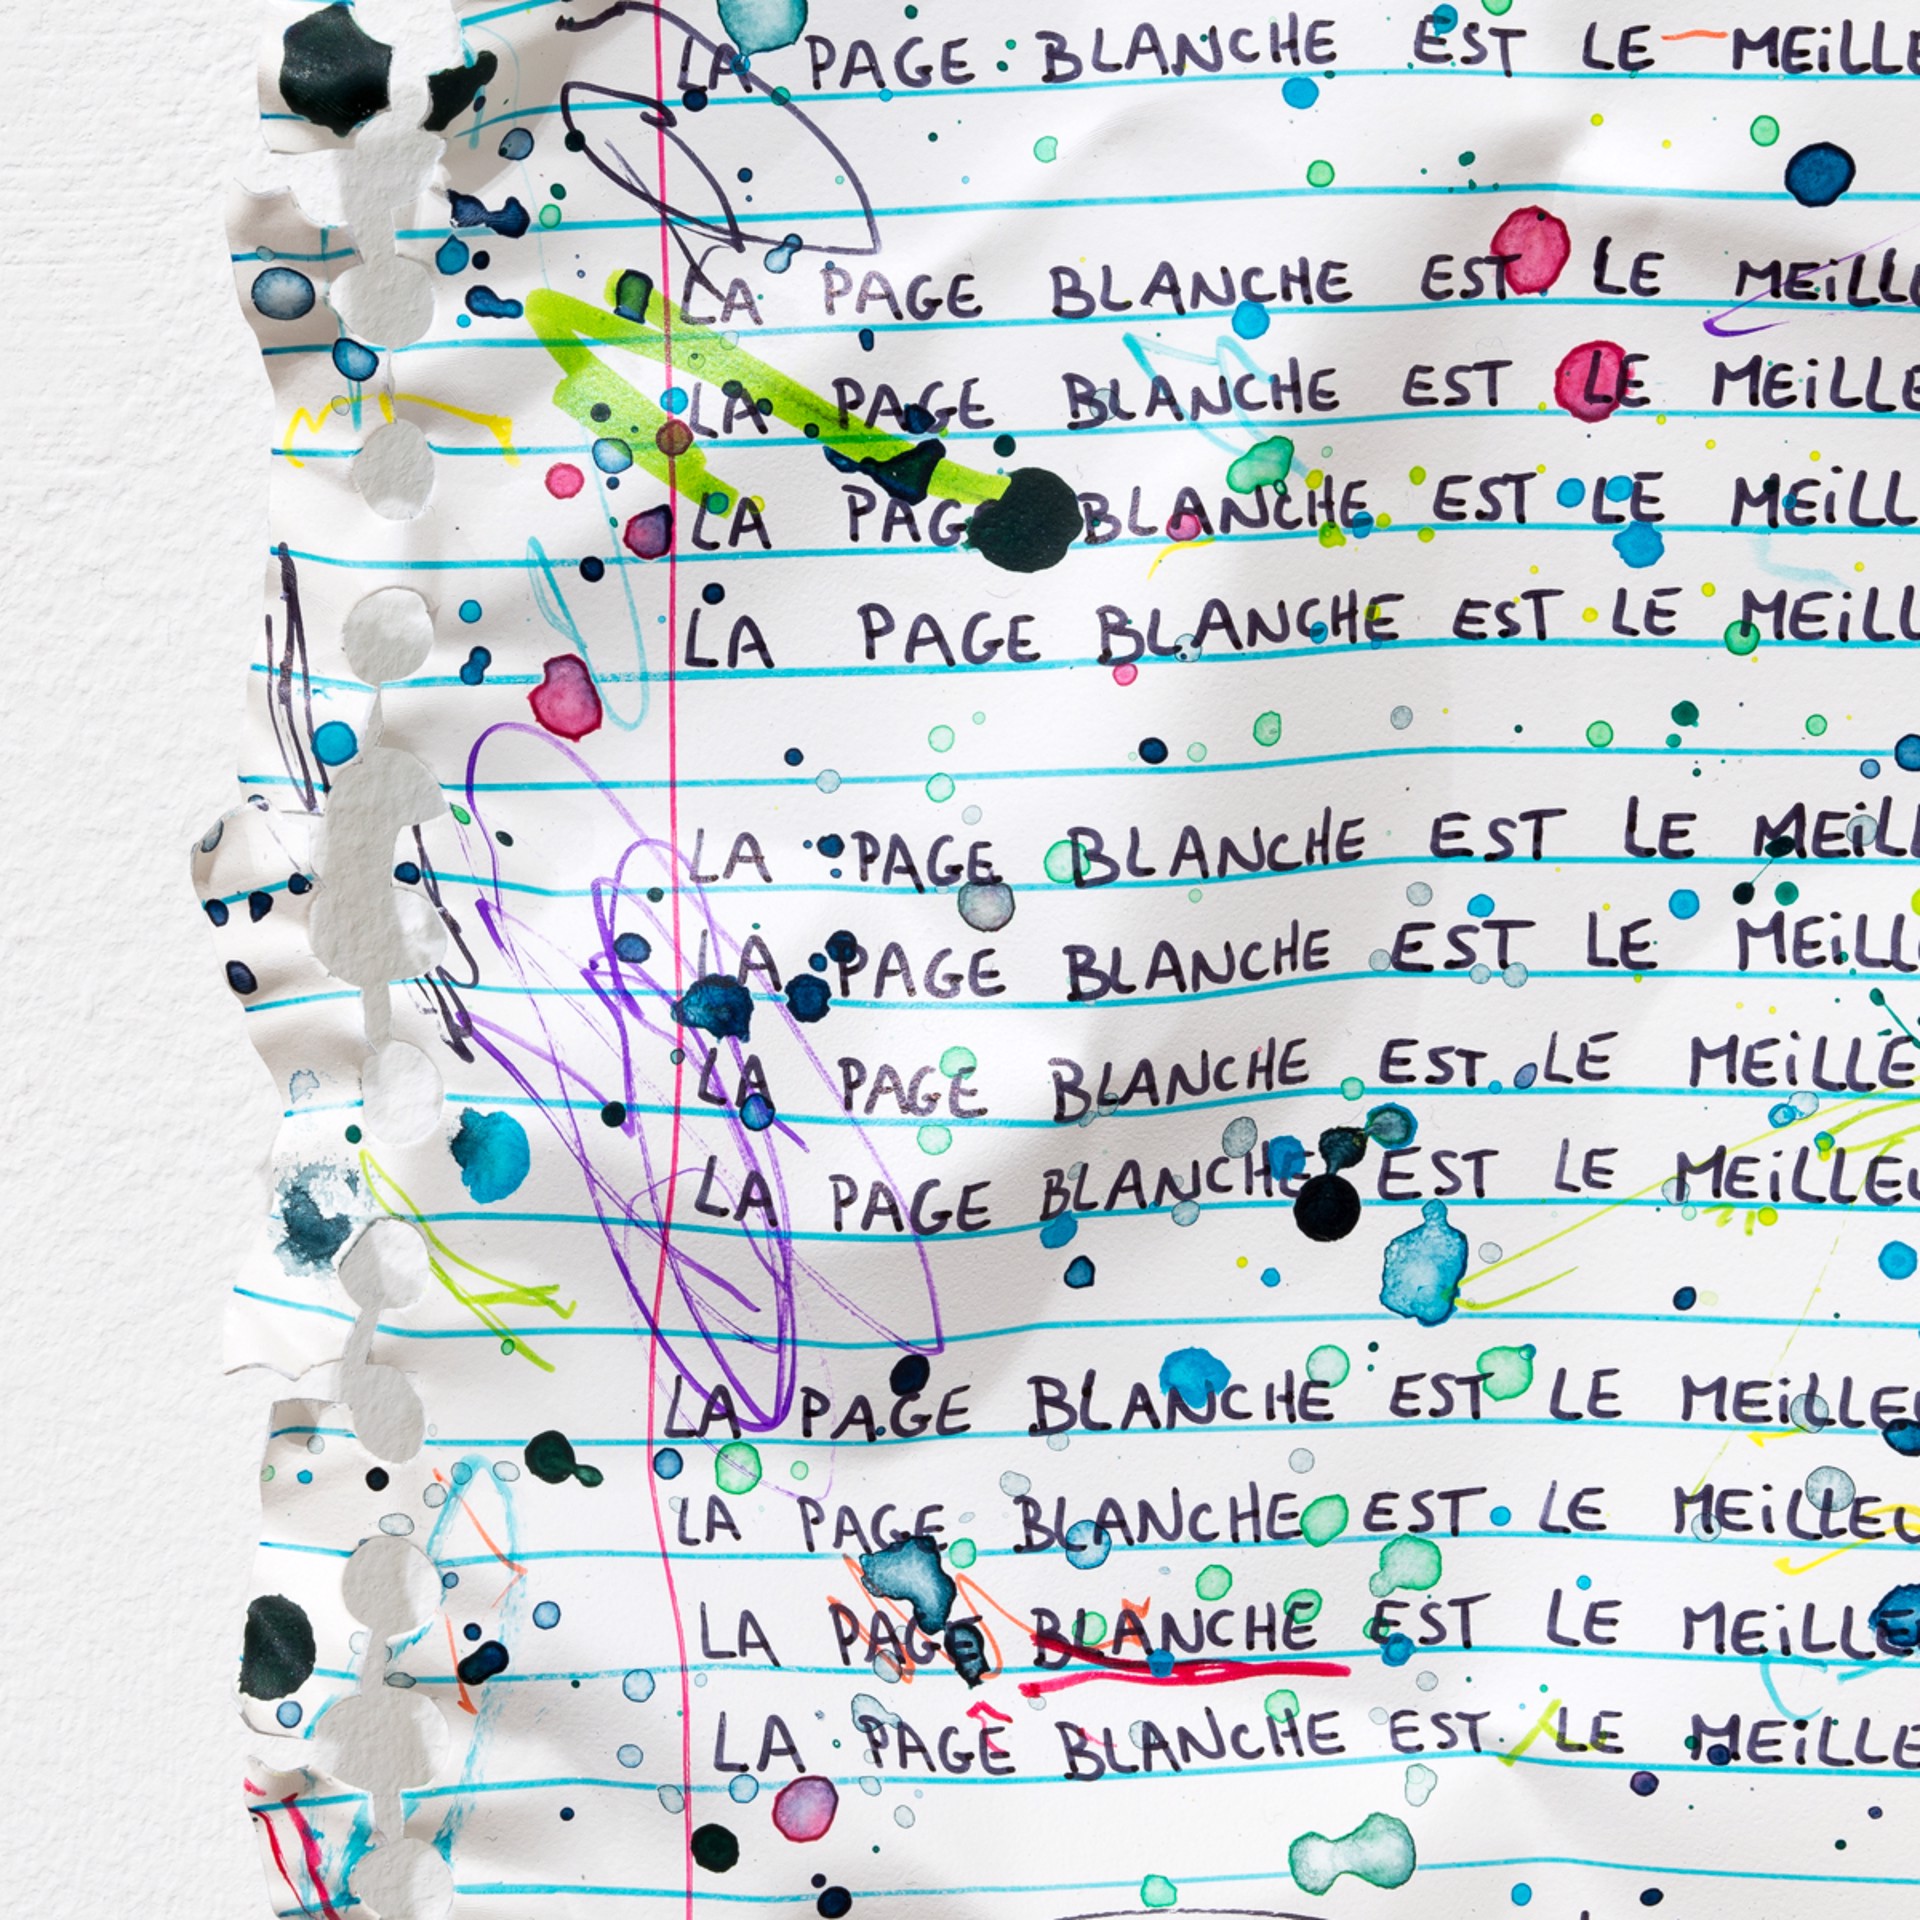 LA PAGE BLANCHE EST LE MEiLLE
LA PAGE BLANCHE EST LE MEiLLE
LA PAGE BLANCHE EST LE MEiLLE
LA PAGE BLANCHE EST LE MEiLL
LA PAGE BLANCHE EST LE MEiLL
LA PAGE BLANCHE EST LE MEiLL
LA PAGE BLANCHE EST LE MEiLL
LA PAGE BLANCHE EST LE MEiLLE
LA PAGE BLANCHE EST LE MEiLLEU
LA PAGE BLANCHE EST LE MEiLLEU
LA PAGE BLANCHE EST LE MEiLLEU
LA PAGE BLANCHE EST LE MEiLLE
LA PAGE BLANCHE EST LE MEiLLE